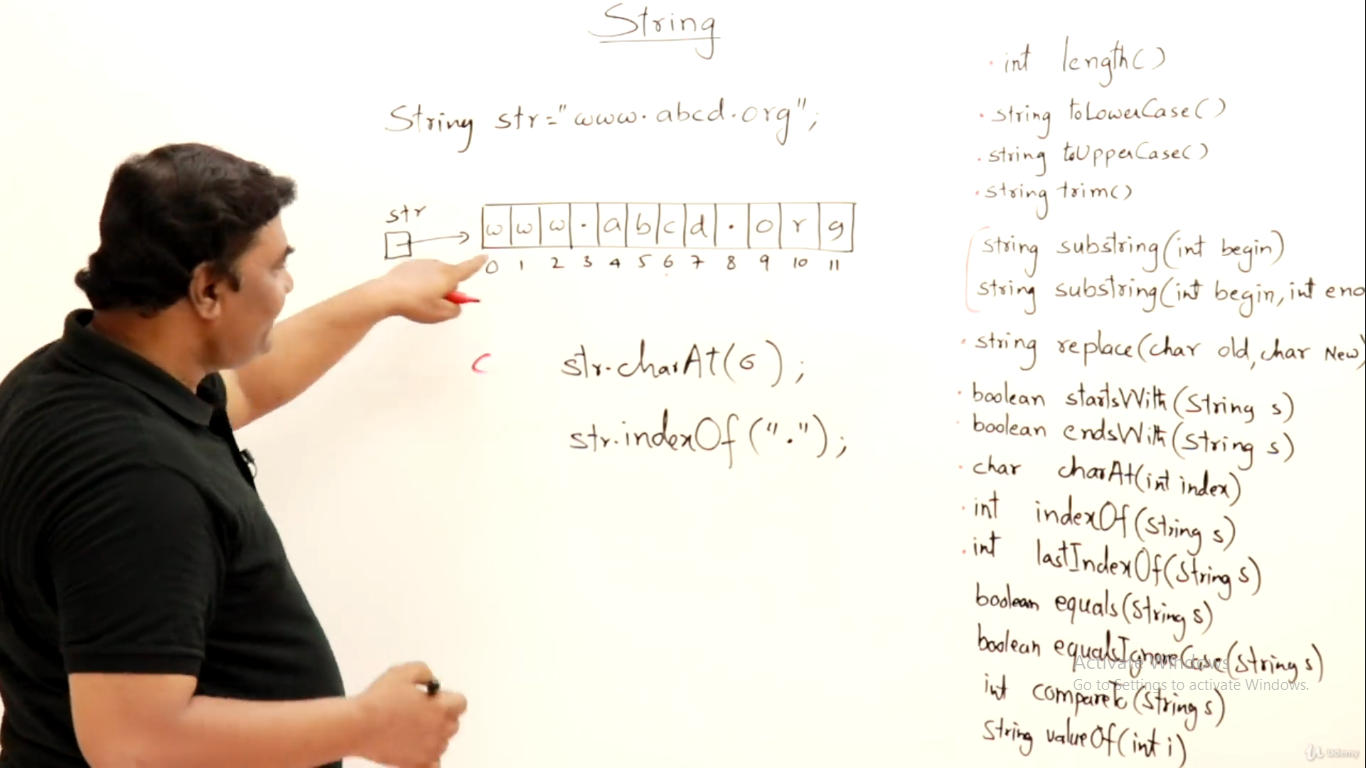 String
String str="www.abcd.org";
str
w w w . a b c d . o r g
0 1 2 3 4 5 6 7 8 9 10 11
c str.charAt(6);
str.indexOf(".");
. int length()
. string toLowerCase()
. string toUpperCase()
. string trim()
string substring(int begin)
string substring(int begin, int end
. string replace(char old, char New)
. boolean startsWith(String s)
. boolean endsWith(String s)
. char charAt(int index)
. int indexOf(String s)
. int lastIndexOf(String s)
boolean equals(String s)
boolean equalsIgnoreCase(String s)
Activate Windows
Go to Settings to activate Windows.
int compareTo(String s)
String valueOf(int i)
Udemy